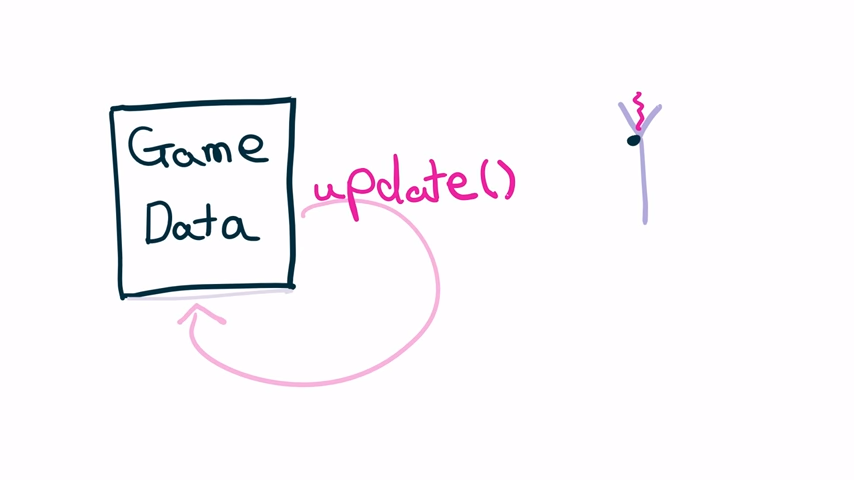 Game
Data
update()